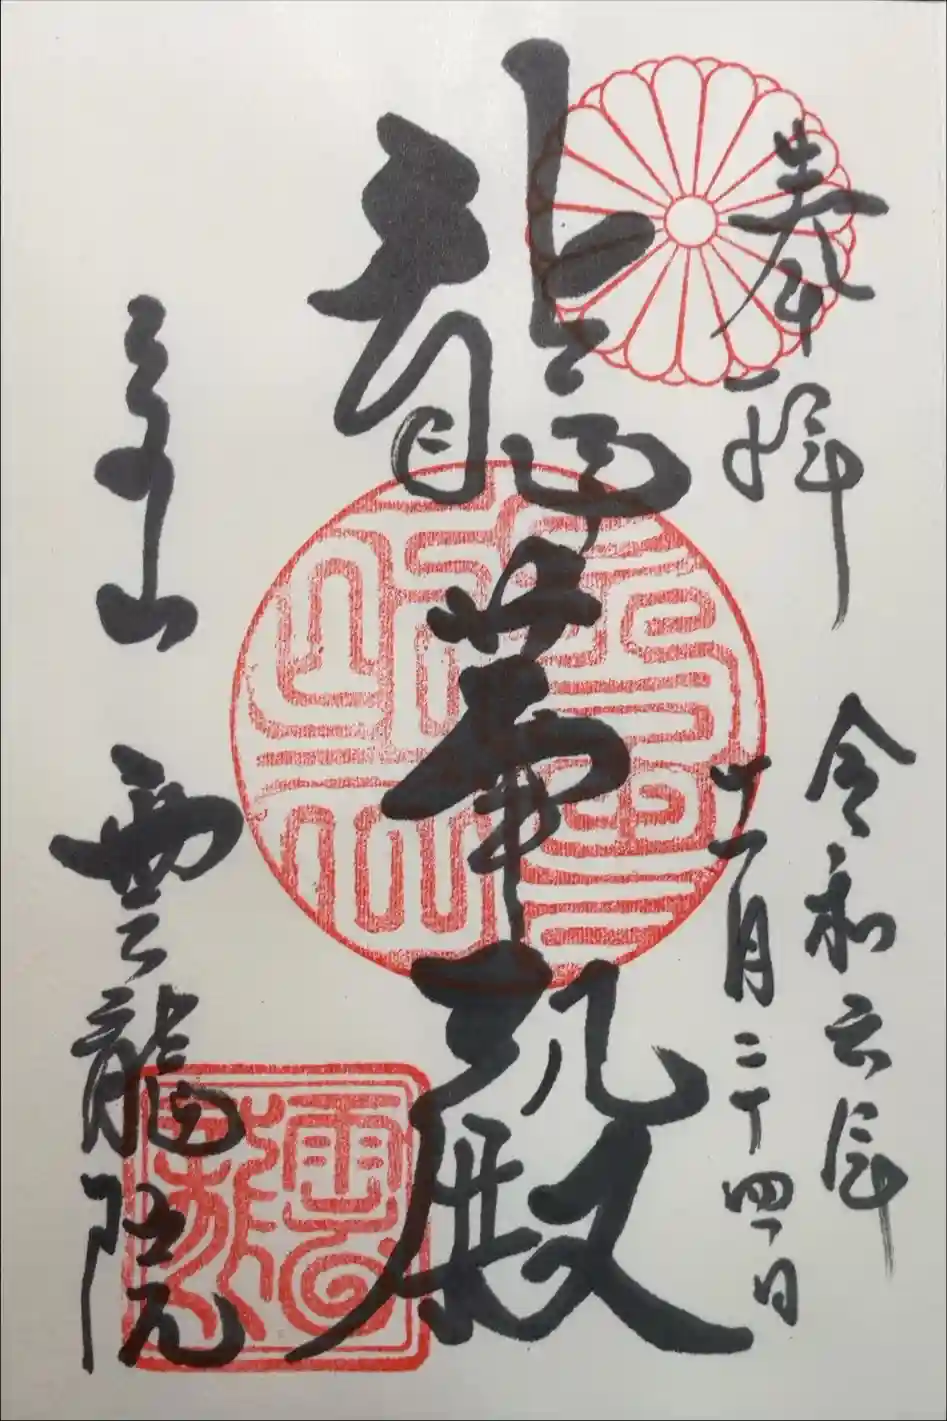 奉拝
令和元年
十一月二十四日
龍華殿
泉山 雲龍院